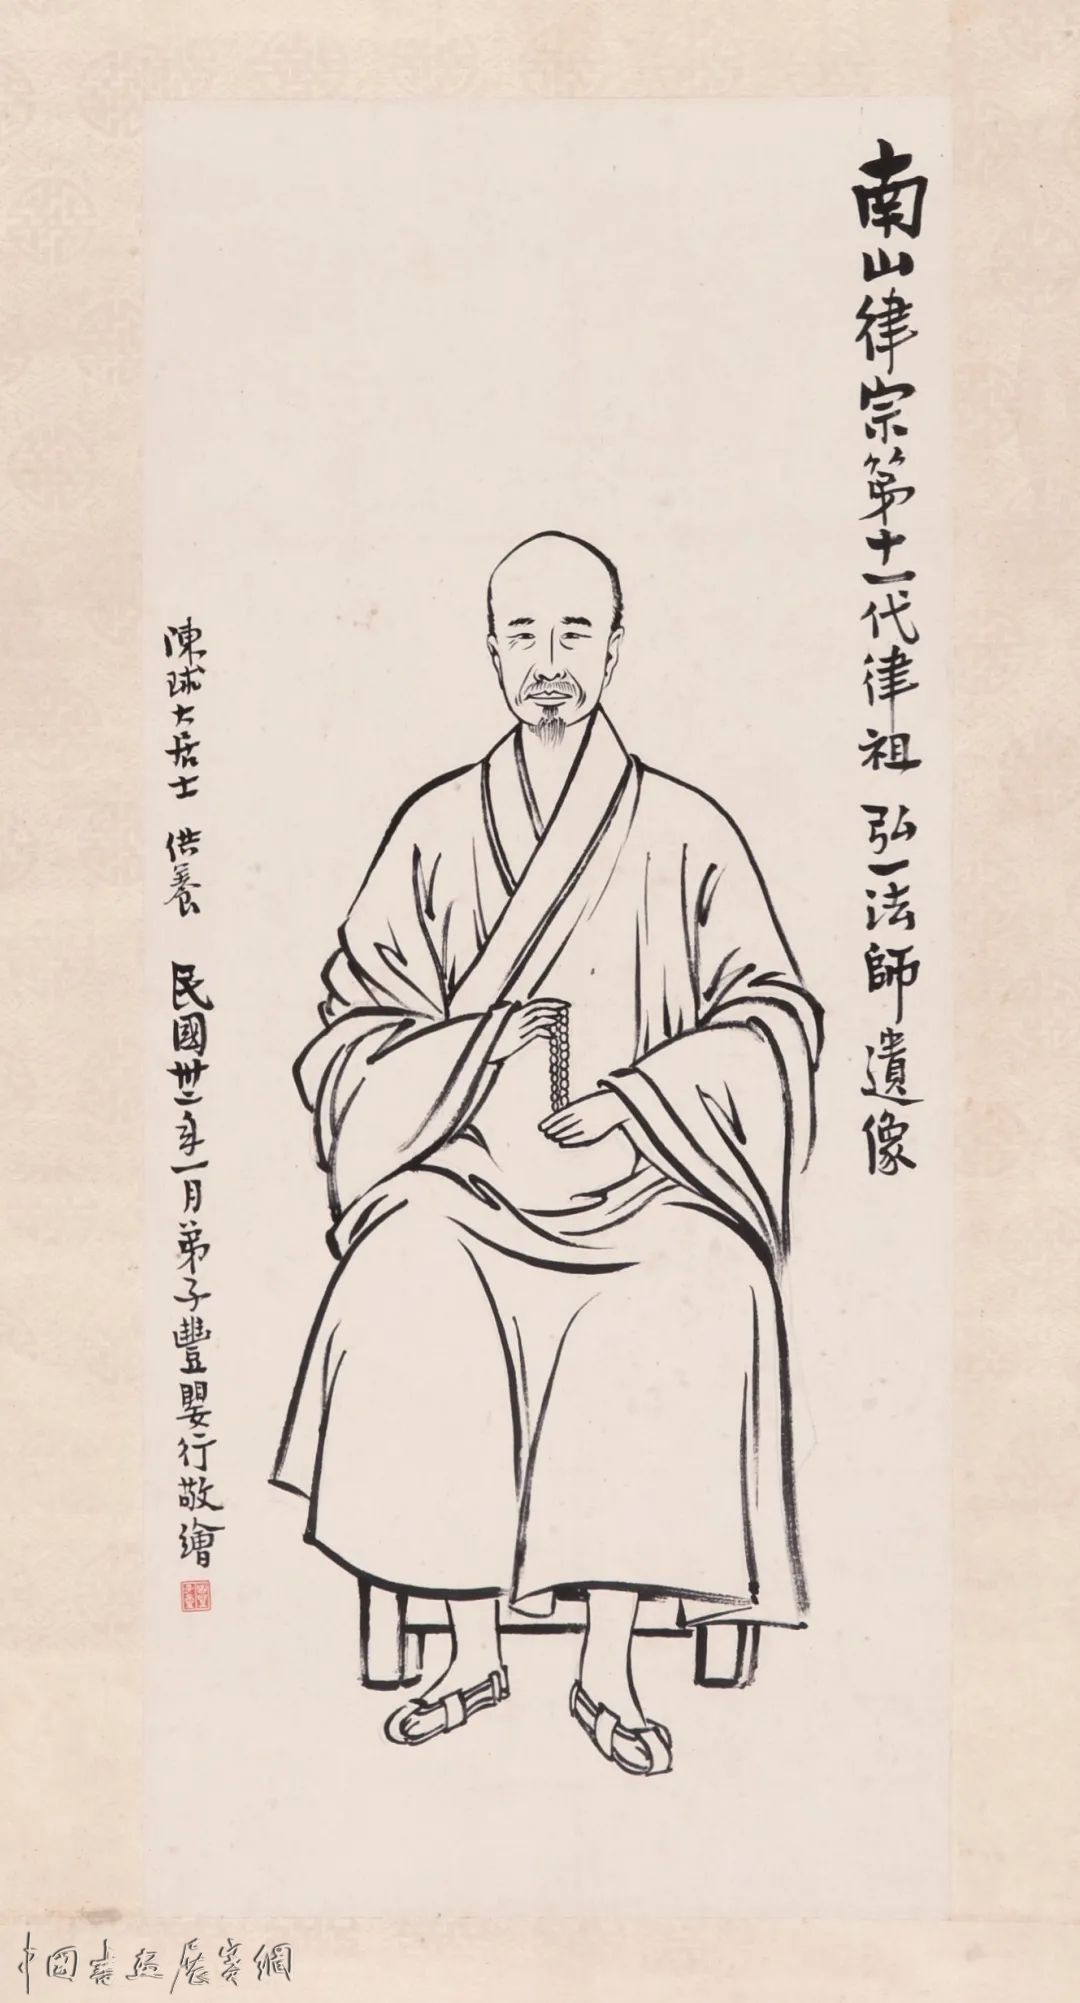 南山律宗第十一代律祖 弘一法師遺像
陳球大居士 供養 民國卅二年一月弟子豐嬰行敬繪
中国书画展赛網